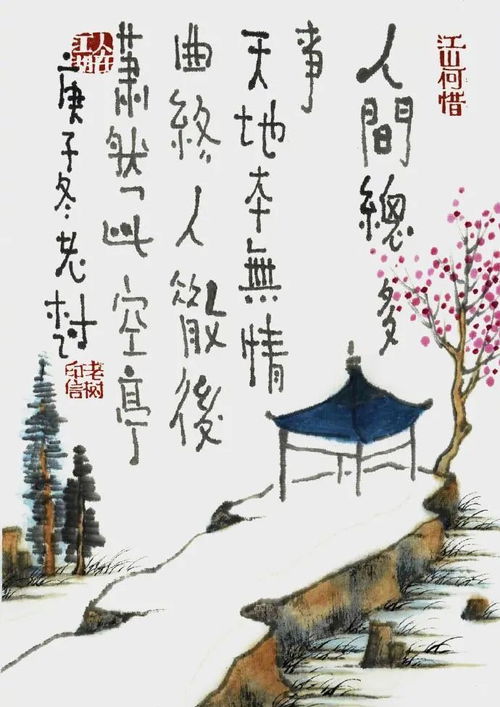 江山何惜
人間總多
事
天地本無情
曲終人散後
蕭然此空亭
人在江湖
庚子冬老树
老树印信